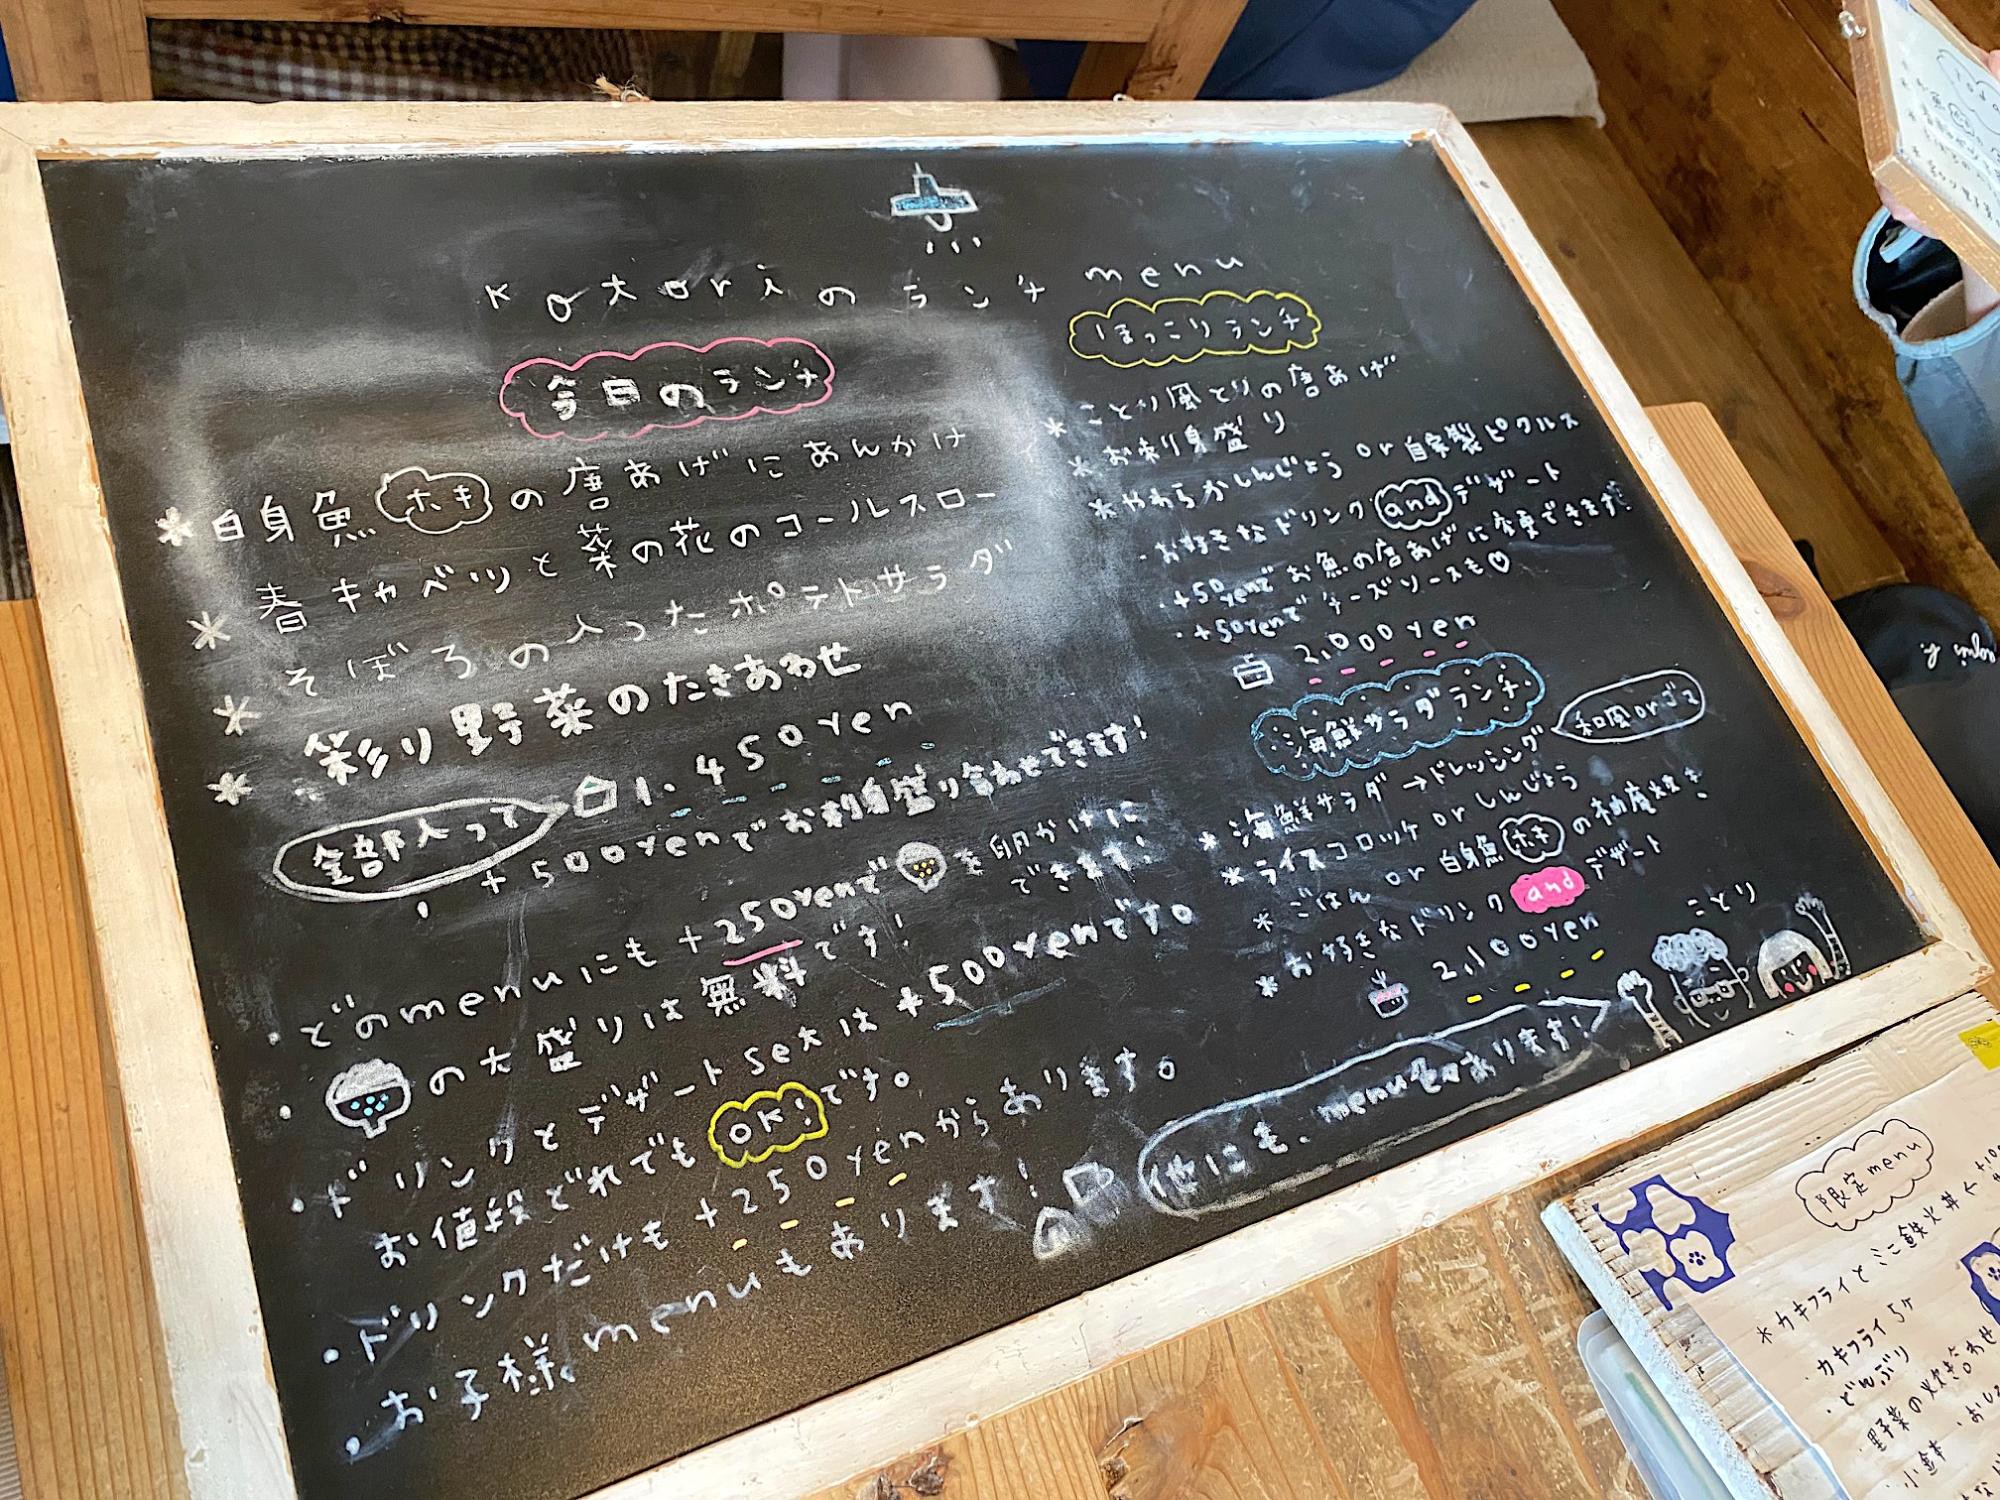 Kotoriのランチmenu
今日のランチ
* 白身魚 ホキ の唐あげにあんかけ
* 春キャベツと菜の花のコールスロー
* そぼろの入ったポテトサラダ
* 彩り野菜のたきあわせ
全部入って 1,450yen
・+500yenでお刺身盛り合わせできます!
・どのmenuにも+250yenで を卵かけにできます!
・ の大盛りは無料です!
・ドリンクとデザートsetは+500yenです。
お値段どれでもOK!です。
・ドリンクだけも+250yenからあります。
・お子様menuもあります!
ほっこりランチ
* ことり風とりの唐あげ
* お刺身盛り
* やわらかしんじょう or 自家製ピクルス
・お好きなドリンク and デザート
・+50yenでお魚の唐あげに変更できます!
・+50yenでチーズソースも♡
2,000yen
海鮮サラダランチ
* 海鮮サラダ→ドレッシング 和風orゴマ
* ライスコロッケ or しんじょう
* ごはん or 白身魚 ホキ の柚庵焼き
* お好きなドリンク and デザート
2,100yen
ことり
他にも、menu色々あります!
限定menu
* カキフライとミニ鉄火丼
・カキフライ5ケ
・どんぶり
・野菜の炊き合わせ
・小鉢